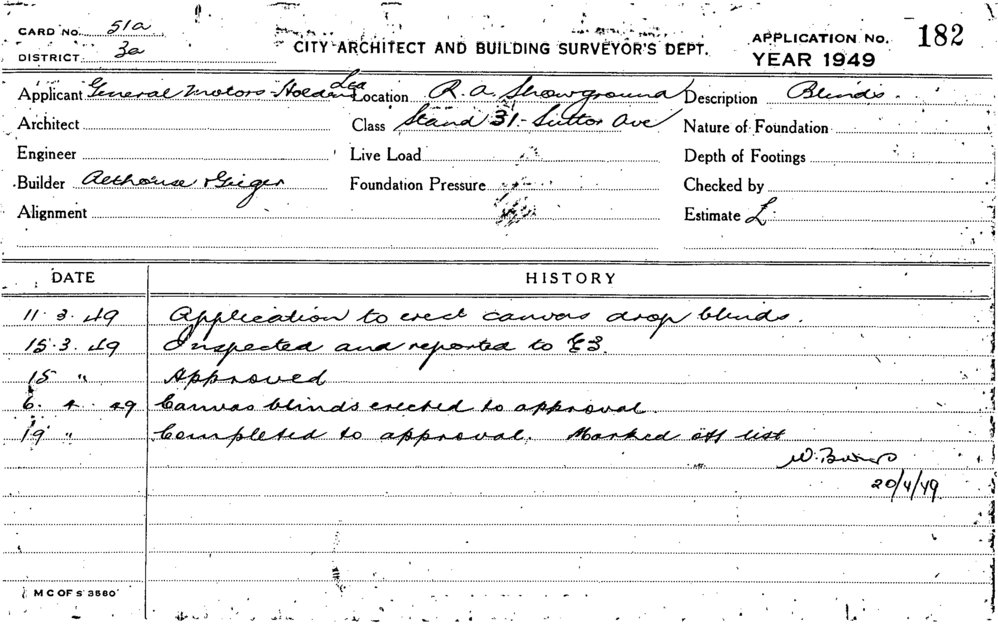 CARD NO. 51a
DISTRICT 3a
CITY ARCHITECT AND BUILDING SURVEYOR'S DEPT.
APPLICATION NO. 182
YEAR 1949
Applicant General Motors-Holden Ltd Location R. A. Showground Description Blinds.
Architect Class Stand 31 - Suttor Ave Nature of Foundation
Engineer Live Load Depth of Footings
Builder Althouse & Geiger Foundation Pressure Checked by
Alignment Estimate £
DATE HISTORY
11.3.49 Application to erect canvas drop blinds.
15.3.49 Inspected and reported to
15 " Approved
6. 4. 49 Canvas blinds erected to approval.
19 " Completed to approval. Marked off list
W.
20/4/49
M C OF S 3560